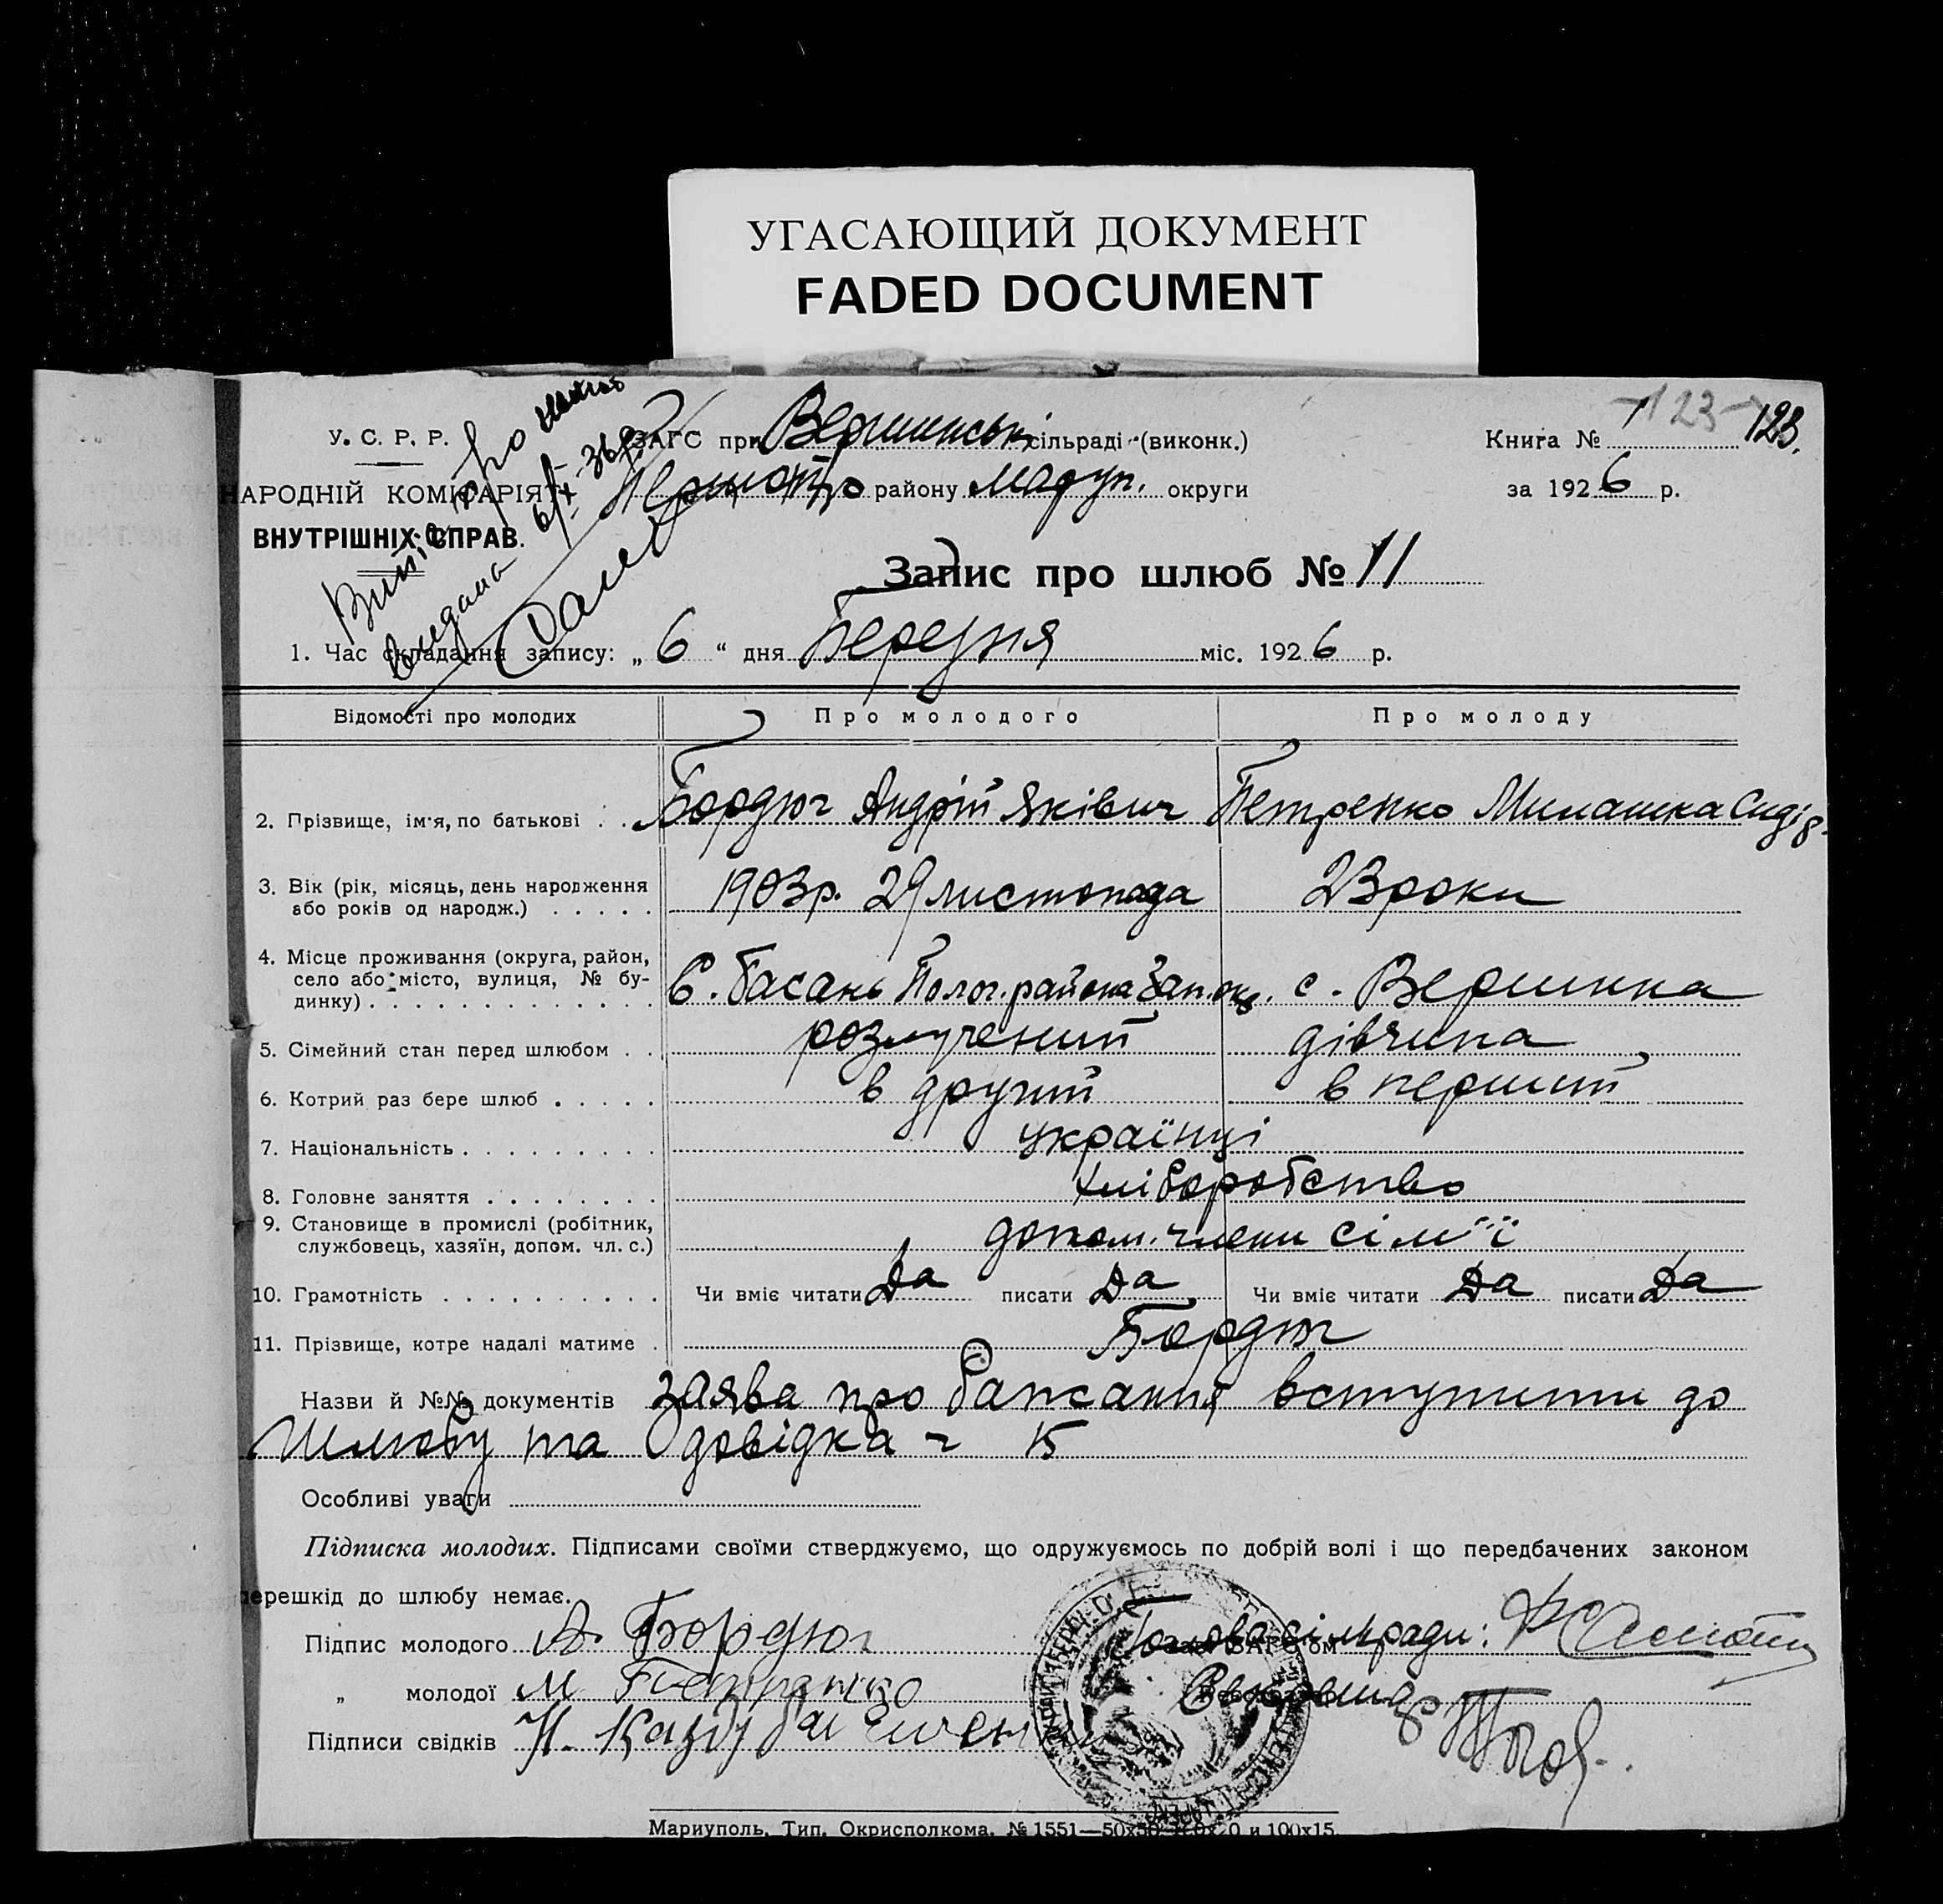 УГАСАЮЩИЙ ДОКУМЕНТ
FADED DOCUMENT
У. С. Р. Р.
НАРОДНІЙ КОМІСАРІЯТ
ВНУТРІШНІХ СПРАВ.
ЗАГС при Вершинськ сільраді (виконк.)
району Маруп. округи
Книга № 1 123 123.
за 1926 р.
Запис про шлюб № 11
1. Час складання запису: „ 6 “ дня Березня міс. 1926 р.
Відомості про молодих Про молодого Про молоду
2. Прізвище, ім'я, по батькові Бордюг Андрій Яківич Петренко Милашка Сидір
3. Вік (рік, місяць, день народження 1903р. 29 листопада 23 роки
або років од народж.)
4. Місце проживання (округа, район,
село або місто, вулиця, № бу- С. Басань Полог. района Зап. окр. с. Вершина
динку)
5. Сімейний стан перед шлюбом розлучений дівчина
6. Котрий раз бере шлюб в другий в перший
7. Національність українці
8. Головне заняття хліборобство
9. Становище в промислі (робітник,
службовець, хазяїн, допом. чл. с.) допом. члени сім'ї
10. Грамотність Чи вміє читати Да писати Да Чи вміє читати Да писати Да
11. Прізвище, котре надалі матиме Бордюг
Назви й №№ документів заява про бажання вступити до
шлюбу та довідка ч 15
Особливі уваги
Підписка молодих. Підписами своїми стверджуємо, що одружуємось по добрій волі і що передбачених законом
перешкід до шлюбу немає.
Підпис молодого А. Бордюг Голова сільради:
„ молодої М Петренко
Підписи свідків Н.
Мариуполь, Тип. Окрисполкома. № 1551—50х50 и 100х15